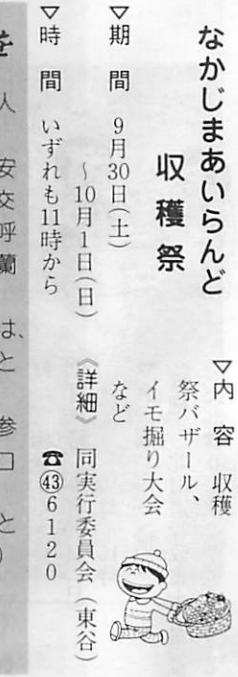 なかじまあいらんど
収穫祭
▽期　間　9月30日(土)
～10月1日(日)
▽時　間　いずれも11時から
▽内　容　収穫
祭バザール、
イモ掘り大会
など
《詳細》同実行委員会（東谷）
☎㊸6120
を
人　安交呼蘭　は、と　参口　と）